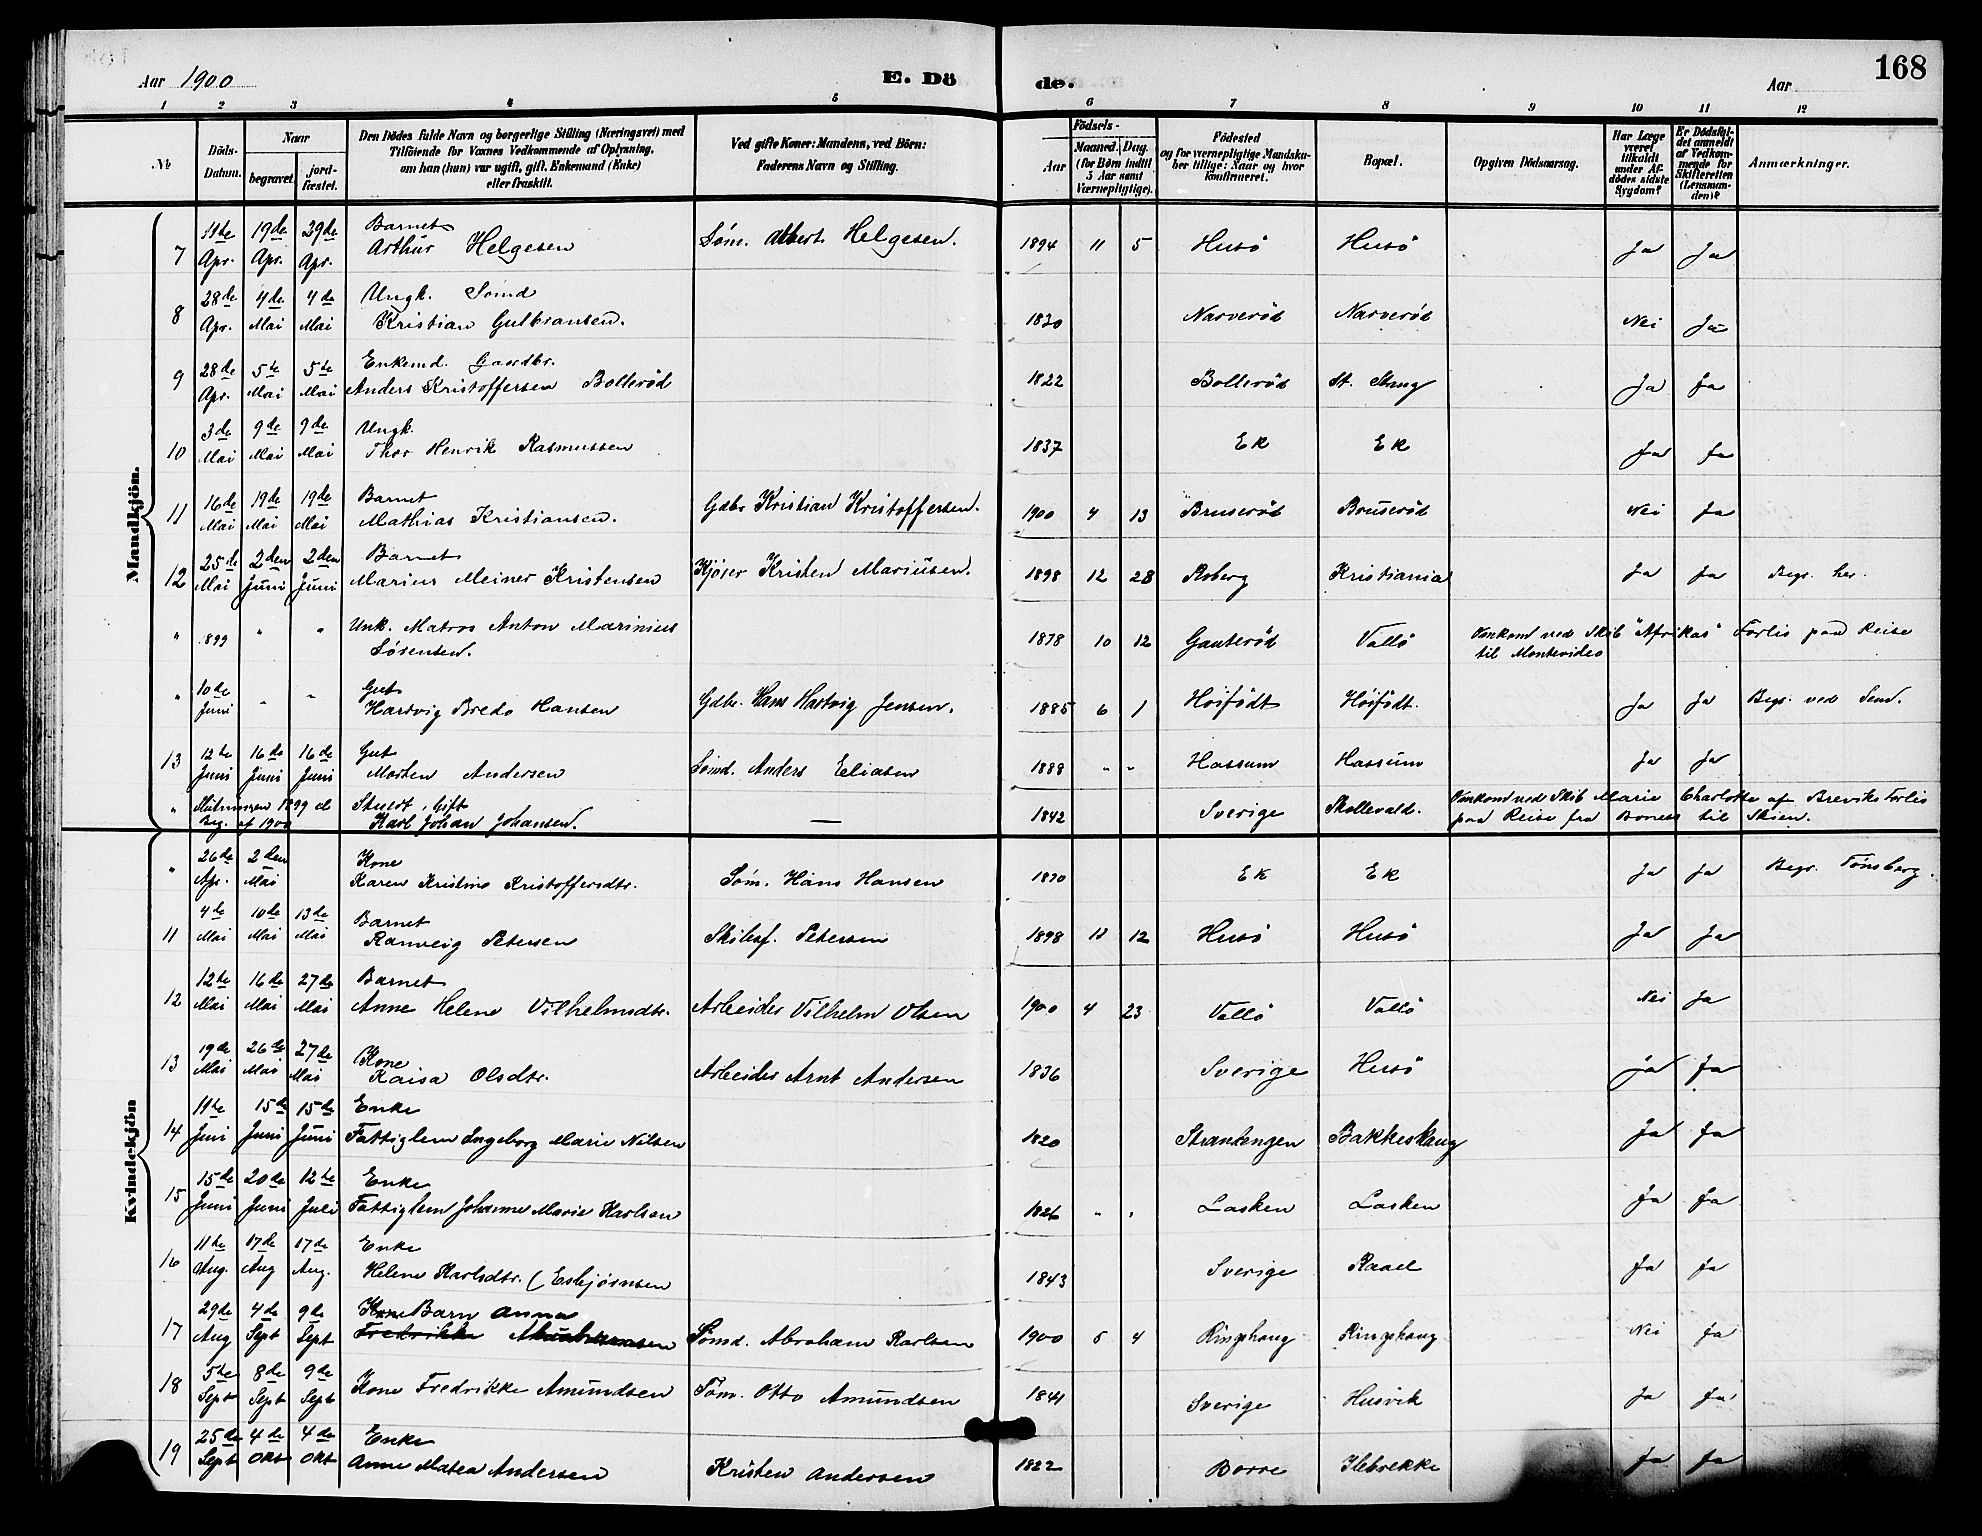 Aar 1900
E. Dö de.
Aar
168
1 2 3 4 5 6 7 8 9 10 11 12
№
Döds-Datum.
Naar
begravet.
jord-fæstet.
Den Dödes fulde Navn og borgerlige Stilling (Næringsvei) med
Tilföiende for Voxnes Vedkommende af Oplysning,
om han (hun) var ugift, gift, Enkemand (Enke)
eller fraskilt.
Ved gifte Koner: Mandens, ved Börn:
Faderens Navn og Stilling.
Födsels-
Aar
Maaned. Dag.
(for Børn indtil
5 Aar samt
Værnepligtige).
Födested
og for værnepligtige Mandska-
ber tillige: Naar og hvor
konfirmeret.
Bopæl.
Opgiven Dödsaarsag.
Har Læge
været
tilkaldt
under Af-
dødes sidste
Sygdom?
Er Dödsfal-
det anmeldt
af Vedkom-
mende for
Skifteretten
(Lensman-
den)?
Anmærkninger.
Mandkjön.
7 11te Apr. 19de Apr. 29de Apr. Barnet Arthur Helgesen Søm. Albert Helgesen. 1894 11 5 Husö Husö Ja Ja
8 28de Apr. 4de Mai 4de Mai Ungk. Sömd Kristian Gulbransen. 1830 Narveröd Narveröd Nei Ja
9 28de Apr. 5te Mai 5te Mai Enkemd. Gaardbr. Anders Kristoffersen Bolleröd 1822 Bolleröd St. Stang Ja Ja
10 3de Mai 9de Mai 9de Mai Ungk. Thor Henrik Rasmussen 1837 Ek Ek Ja Ja
11 16de Mai 19de Mai 19de Mai Barnet Mathias Kristiansen. Gdbr Kristian Kristoffersen. 1900 4 13 Bruseröd Bruseröd Nei Ja
12 25de Mai 2den Juni 2den Juni Barnet Marius Meiner Kristensen Kjörer Kristen Mariusen. 1898 12 28 Roberg Kristiania Ja Ja Begr. her.
" 1899 " " Unk. Matros Anton Marinius Sørensen. 1878 10 12 Gauteröd Vallö Omkomt ved Skib "Afrikas" Forlis paa Reise til Montevideo
" 10de Juni " " Gut Hartvig Bredo Hansen Gdbr. Hans Hartvig Jensen. 1885 6 1 Höifödt Höifödt. Ja Ja Begr. ved Sem.
13 12te Juni 16de Juni 16de Juni Gut Morten Andersen Sömd. Anders Eliasen 1888 " " Hassum Hassum Ja Ja
" Slutningen 1899 el Beg. af 1900 Stuert, Gift Karl Johan Johansen. — 1842 Sverige Skallevald. Omkomt ved Skib Marie Charlotte af Breviks Forlis paa Reise fra Boness til Skien.
Kvindekjön
" 26de Apr. 2den Mai Kone Karen Kristine Kristoffersdtr. Søm. Hans Hansen 1830 Ek Ek Ja Ja Begr. Tønsberg.
11 4de Mai 10de Mai 13de Mai Barnet Ranveig Petersen Skibsf. Petersen 1898 11 12 Husö Husö Ja Ja
12 12te Mai 16de Mai 27de Mai Barnet Anne Helene Vilhelmsdtr. Arbeider Vilhelm Olsen 1900 4 23 Vallö Vallö Nei Ja
13 19de Mai 26de Mai 27de Mai Kone Kaisa Olsdtr. Arbeider Arnt Andersen 1836 Sverige Husö Ja Ja
14 11te Juni 15de Juni 15de Juni Enke Fattiglem Ingeborg Marie Nilsen 1820 Strantengen Bakkeskaug Ja Ja
15 15de Juni 20de Juni 12te Juli Enke Fattiglem Johanne Marie Karlsen 1826 " " Lasken Lasken Ja Ja
16 11te Aug. 17de Aug 17de Aug. Enke Helene Karlsdtr. (Esbjørnsen 1843 Sverige Raael Ja Ja
17 29de Aug 4de Sept 9de Sept Kone Barn Anna Fredrikke Sømd. Abraham Karlsen 1900 5 4 Ringshaug Ringshaug Nei Ja
18 5te Sept 8de Sept 9de Sept Kone Fredrikke Amundsen Tøm. Otto Amundsen 1841 Sverige Husvik Ja Ja
19 25de Sept 4de Okt 4de Okt Enke Anne Matea Andersen Kristen Andersen 1822 Borre Ilebrekke Ja Ja